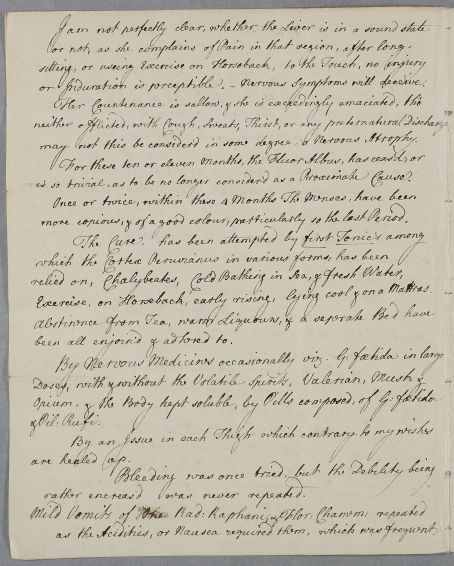 I am not perfectly clear, whether the Liver is in a sound state
or not, as she complains of Pain in that region, after long-
sitting, or useing Exercise on Horseback, to the Touch, no injury
or Induration is perceptible. - Nervous Symptoms will deceive.
Her Countenance is sallow, & she is exceedingly emaciated, tho
neither afflicted, with Cough, Sweats, Thirst, or any preternatural Discharge
may not this be considerd in some degree, a Nervous Atrophy.
For these ten or eleven Months, the Fluor Albus, has ceasd, or
is so trivial, as to be no longer considerd as a Proximate Cause.
Once or twice, within these 4 Months The Menses, have been
more copious, & of a good colour, particularly so the last Period.
The Cure has been attempted by first Tonic's among
which the Cortex Peruvianus in various forms, has been
relied on, Chalybeates, Cold Bathing in Sea, & fresh Water,
Exercise, on Horseback, early rising, lying cool & on a Mattras.
Abstinence from Tea, warm Liquours, & a seperate Bed have
been all enjoin'd & adhered to.
By Nervous Medicines occasionally viz. G. fœtida in large
Doses, with & without the Volatile Spirits, Valerian, Musk &
Opium, & the Body kept soluble, by Pills composed, of G. fœtida
& Pil. Rufi.
By an Issue in each Thigh which contrary to my wishes
are healed up.
Bleeding was once tried, but the Debility being
rather encreas'd was never repeated.
Mild Vomits of Rad: Raphani, & Flor: Chamm: repeated
as the Acidities, or Nausea required them, which was frequent